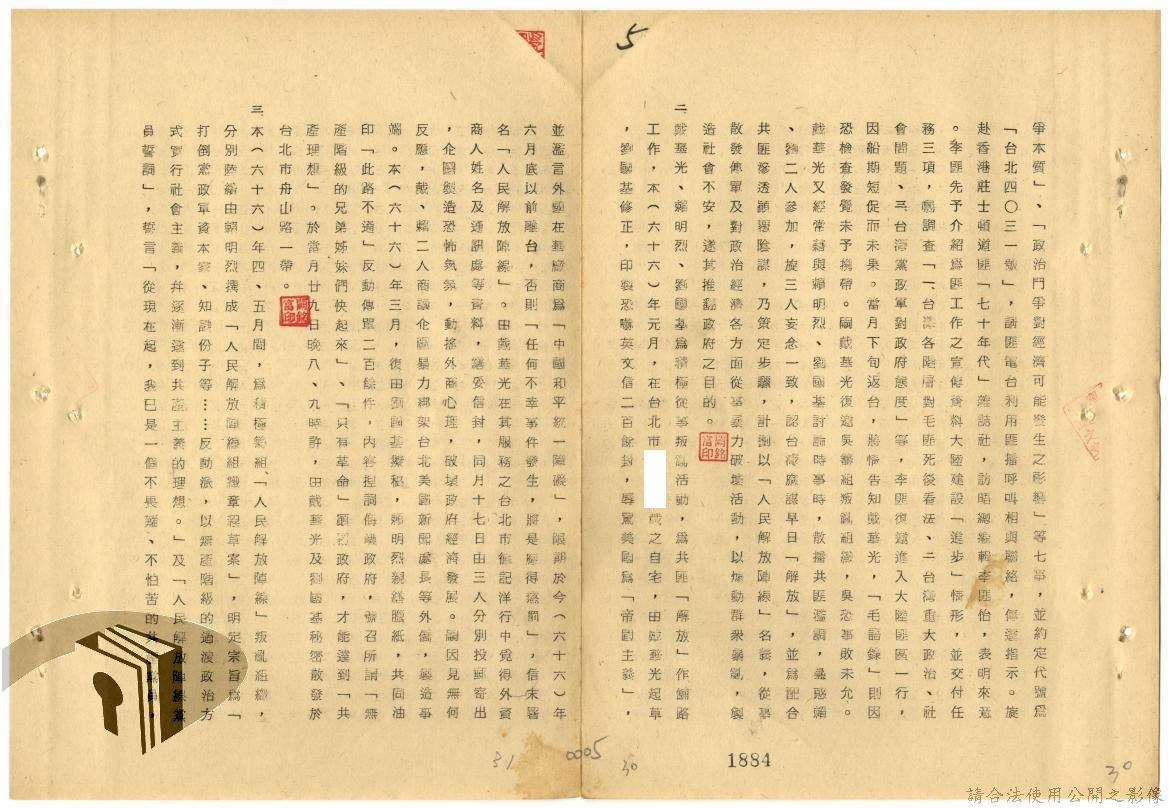 5
爭本質」、「政治鬥爭對經濟可能發生之影響」等七事,並約定代號為
「台北四〇三一號」,請匪電台利用匪播呼叫相與聯絡,傳達指示。旋
赴香港莊士頓道匪「七十年代」雜誌社,訪晤總編輯李匪怡,表明來意
。李匪先予介紹為匪工作之宣傳資料大陸建設「進步」情形,並交付任
務三項,囑調查「一、台灣各階層對毛匪死後看法、二台灣重大政治、社
會問題、三台灣黨政軍對政府態度」等,李匪復邀進入大陸匪區一行,
因船期短促而未果。當月下旬返台,將情告知戴華光,「毛語錄」則因
恐檢查發覺未予携帶。嗣戴華光復邀吳籌組叛亂組織,吳恐事敗未允。
戴華光又經常藉與賴明烈、劉國基討論時事時,散播共匪濫調,蠱惑賴
、劉二人參加,旋三人妄念一致,認台灣應謀早日「解放」,並為配合
共匪滲透顛覆陰謀,乃策定步驟,計劃以「人民解放陣線」名義,從事
散發傳單及對政治經濟各方面從事暴力破壞活動,以煽動群衆暴亂,製
造社會不安,遂其推翻政府之目的。
二、戴華光、賴明烈、劉國基為積極從事叛亂活動,為共匪「解放」作舖路
工作,本(六十六)年元月,在台北市 戴之自宅,由戴華光起草
,劉國基修正,印製恐嚇英文信二百餘封,辱罵美國為「帝國主義」,
並濫言外國在華廠商為「中國和平統一障礙」,限期於今(六十六)年
六月底以前離台,否則「任何不幸事件發生,將是應得懲罰」,信末署
名「人民解放陣線」。由戴華光在其服務之台北市 記洋行中覓得外資
商人姓名及通訊處等資料,繕妥信封,同月十七日由三人分別投郵寄出
,企圖製造恐怖氣氛,動搖外商心理,破壞政府經濟發展。嗣因見無何
反應,戴、賴二人商議企圖暴力綁架台北美國新聞處長等外僑,製造事
端。本(六十六)年三月,復由劉國基擬稿,賴明烈繕寫臘紙,共同油
印「此路不通」反動傳單二百餘件,內容捏詞侮衊政府,號召所謂「無
產階級的兄弟姊妹們快起來」、「只有革命」顛覆政府,才能達到「共
產理想」。於當月廿九日晚八、九時許,由戴華光及劉國基秘密散發於
台北市舟山路一帶。
三、本(六十六)年四、五月間,為積極籌組「人民解放陣線」叛亂組織,
分別陸續由賴明烈撰成「人民解放陣線組織章程草案」,明定宗旨為「
打倒黨政軍資本家、知識份子等……反動派,以無產階級的過渡政治方
式實行社會主義,并逐漸達到共產主義的理想。」及「人民解放陣線黨
員誓詞」,誓言「從現在起,我已是一個不畏難、不怕苦的共產黨員,
31
0005
30
1884
30
請合法使用公開之影像